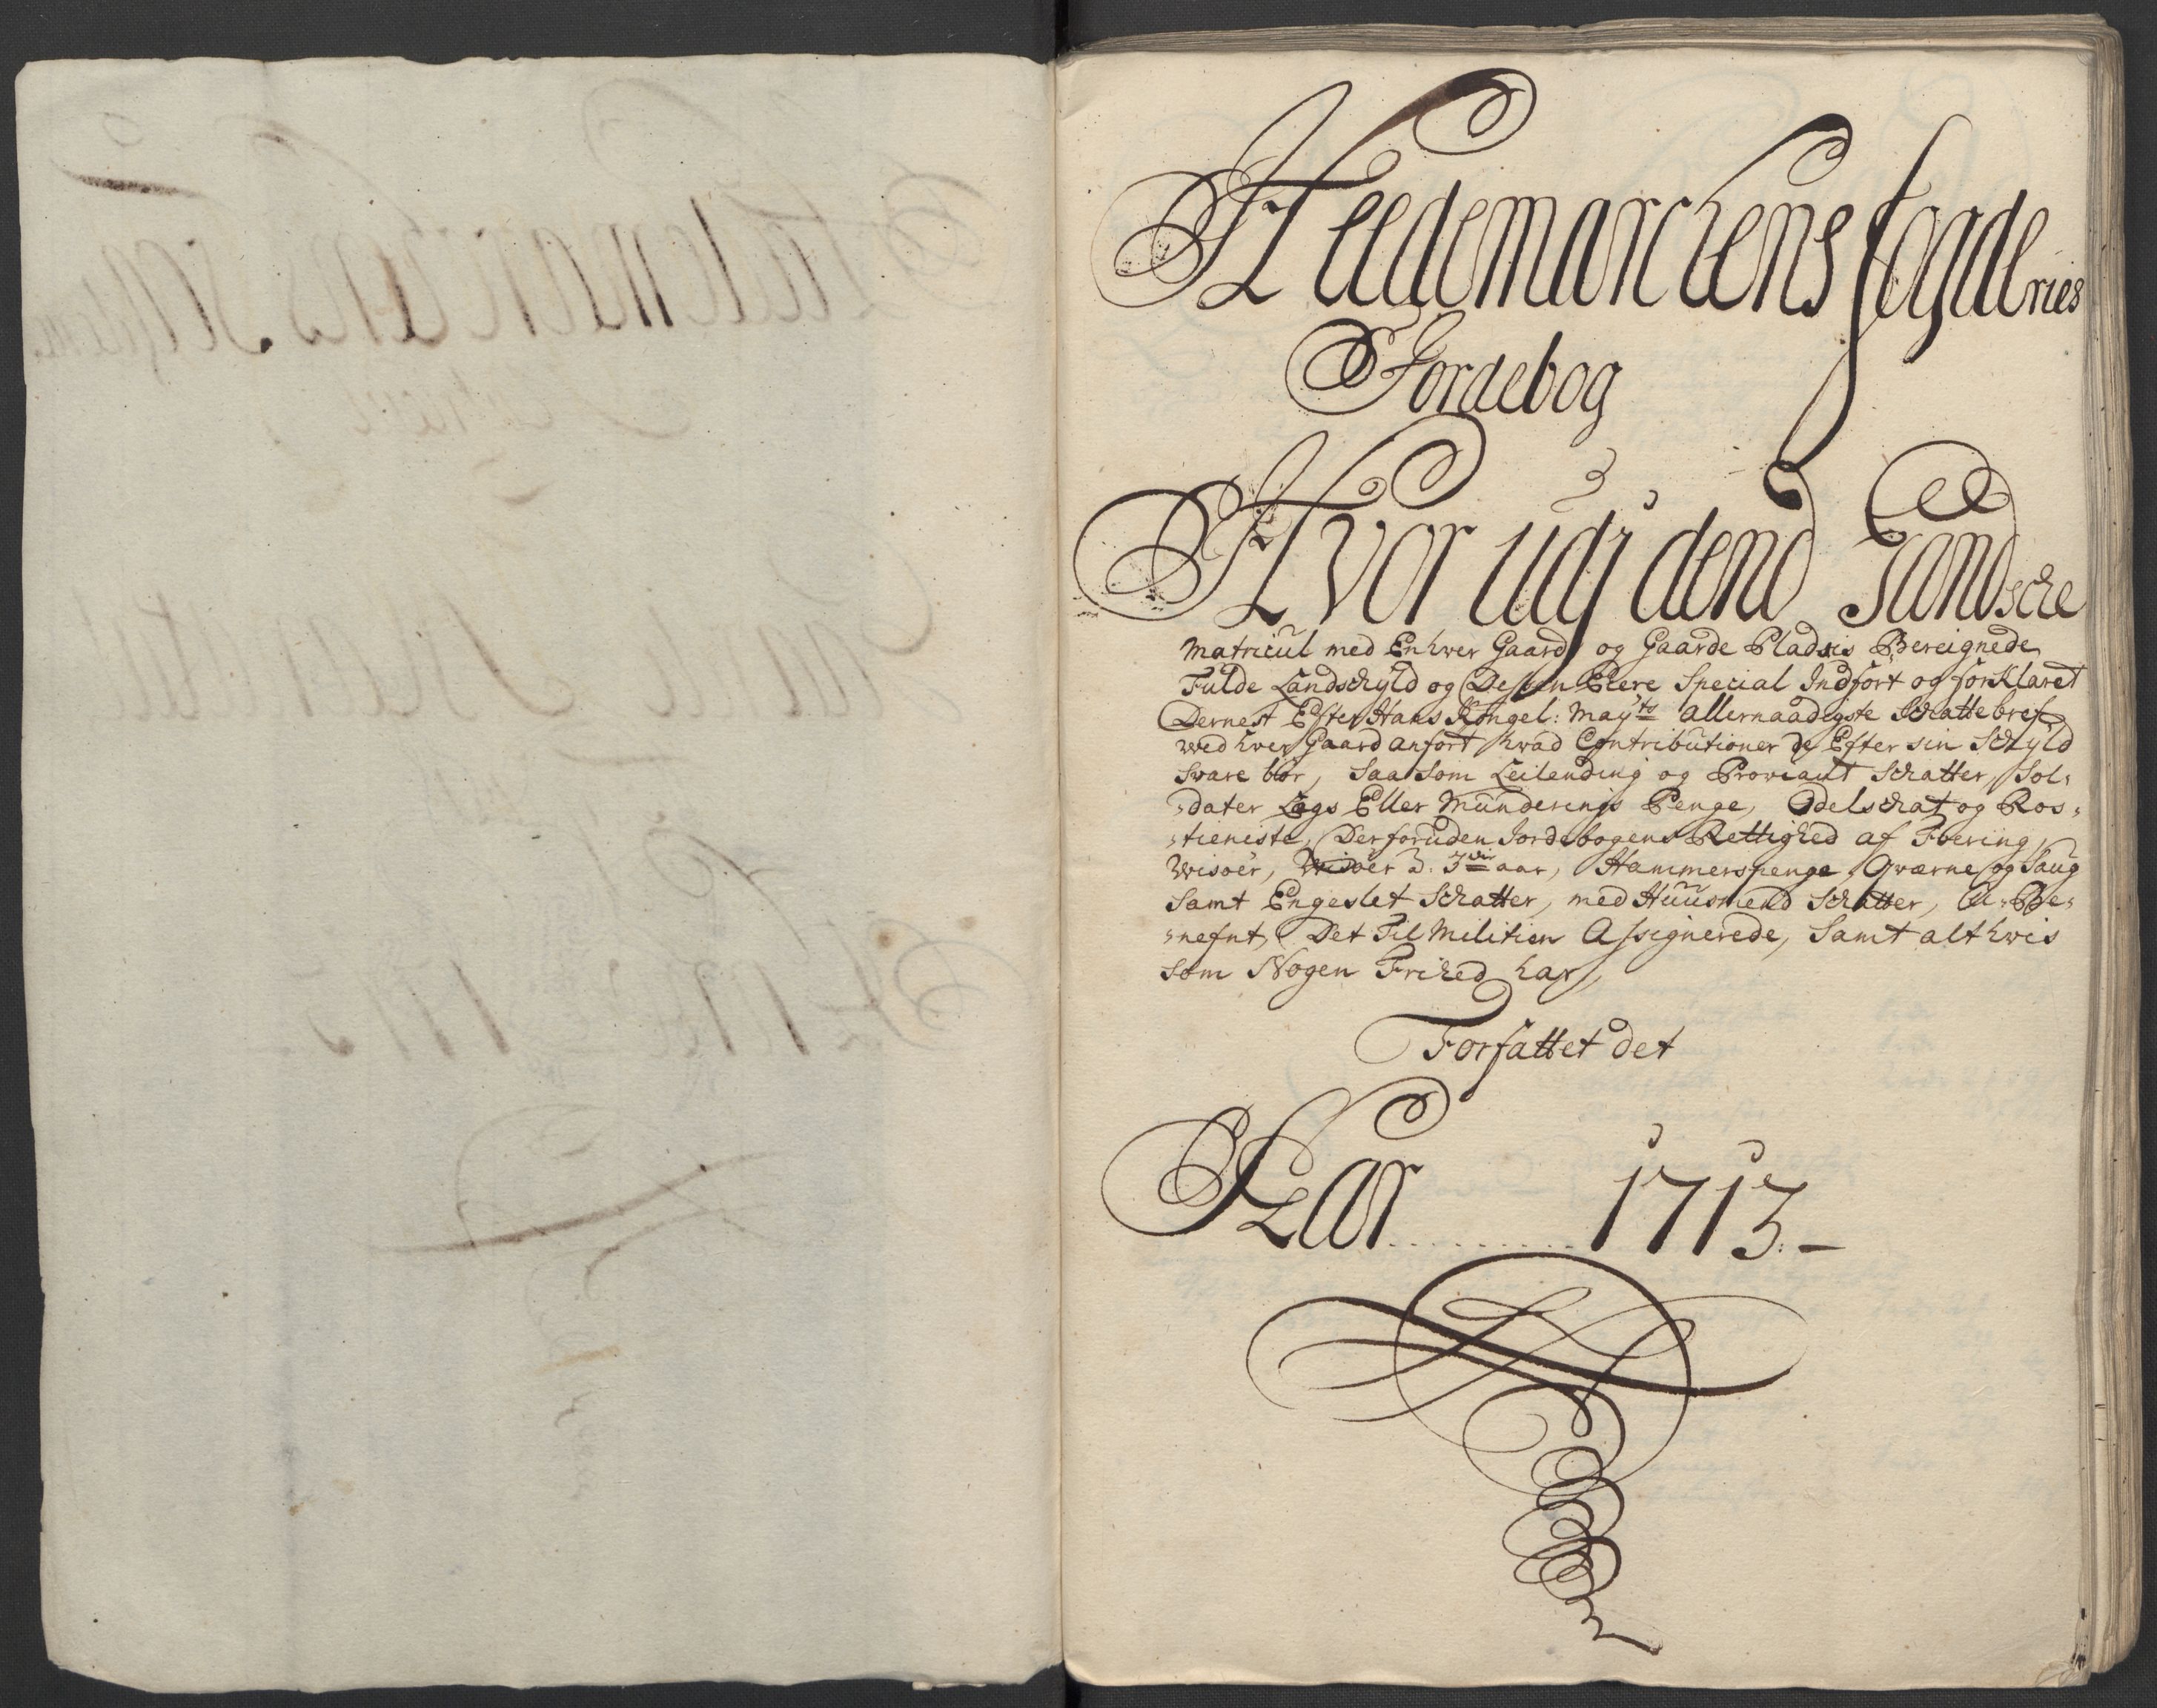 Heedemarchens fogderies
Jordebog
Hvor udj dend Sandsche
Matricul med Enhver Gaard og Gaarde Pladsis Bereignede
Fulde Landschyld og Dessen Eiere Special Indfört og forklaret
Dernest Efter Hans Kongel: Mayts allernaadigste Schattebref
wed hver Gaard anfört hvad Contributioner de Efter sin Schyld
Svare bör, Saa som Leilending og Proviant Schatter, Sol-
-dater Legs Eller Munderings Penge, Odelschat og Ros-
-tieniste, Der foruden Jordebogens Rettighed af Foering,
Wisöer, Wisöer 3: 3die aar, Hammerspenge, Qværne og Saug
Samt Engeslet Schatter, med Huusmend Schatter, U-Be-
-nefnt, Det Til Militien Assignerede, Samt alt hvis
som Nogen Frihed har,
Forfattet det
Aar 1713.-